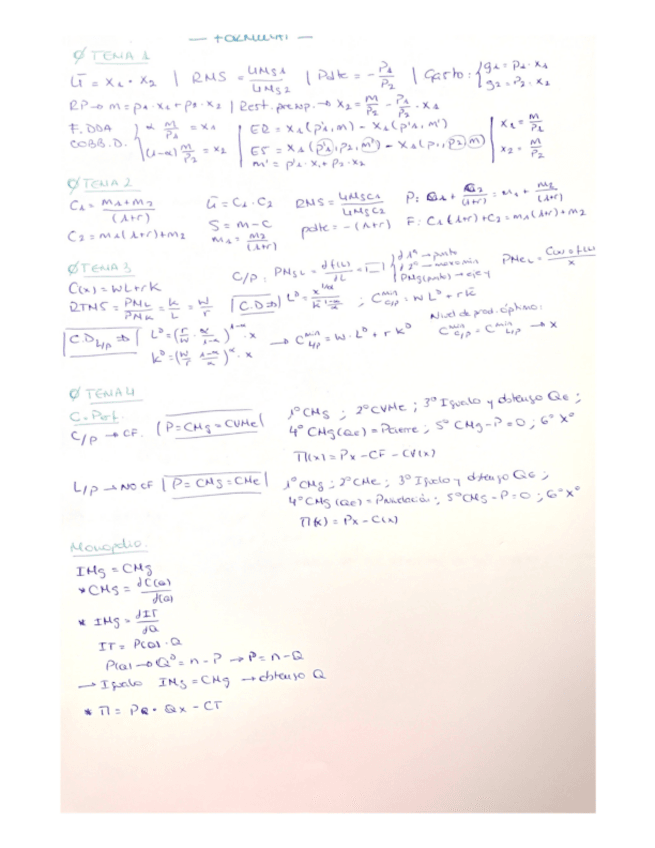 — FORMULAS —
Ø TEMA 1
Ū = x₁ · x₂ | RMS = UMg1/UMg2 | Pdte = - P₁/P₂ | Gasto: { g₁ = P₁ · x₁
g₂ = P₂ · x₂
RP → m = p₁ · x₁ + p₂ · x₂ | Rest. presup. → x₂ = m/P₂ - P₁/P₂ · x₁
F. DDA
COBB. D. { α m/P₁ = x₁
(1-α) m/P₂ = x₂
ER = x₁ (p'₁, m) - x₁ (p'₁, m')
ES = x₁ (p'₁, p₂, m') - x₁ (p₁, p₂, m)
m' = p'₁ · x₁ + p₂ · x₂
x₁ = m/P₁
x₂ = m/P₂
Ø TEMA 2
C₁ = m₁+m₂/(1+r)
C₂ = m₁(1+r)+m₂
Ū = C₁ · C₂
S = m - C
m₁ = m₂/(1+r)
RMS = UMgC1/UMgC2
pdte = - (1+r)
P: C₁ + C₂/(1+r) = m₁ + m₂/(1+r)
F: C₁(1+r)+C₂ = m₁(1+r)+m₂
Ø TEMA 3
C(x) = wL+rK
RTMS = PML/PMK = K/L = w/r
C/P: PMgL = df(L)/dL = { d 1ª → punto
d 2ª → max o min
PMg(punto) → eje y
C.D ⇒ | L⁰ = ; Cᵐⁱⁿ c/p = w L⁰ + r K̄
C.D L/P ⇒ | L⁰ = (r/w · α/1-α)^1-α · x
K⁰ = (w/r · 1-α/α)^α · x
→ Cᵐⁱⁿ L/P = w · L⁰ + r K⁰
Nivel de prod. óptimo:
Cᵐⁱⁿ c/p = Cᵐⁱⁿ L/P → x
Ø TEMA 4
C. Perf.
C/P → CF. | P = CMg = CVMe |
1º CMg ; 2º CVMe ; 3º Igualo y obtengo Qe ;
4º CMg(Qe) = Pcierre ; 5º CMg - P = 0 ; 6º x⁰
Π(x) = Px - CF - CV(x)
L/P → NO CF | P = CMg = CMe |
1º CMg ; 2º CMe ; 3º Igualo y obtengo Qe ;
4º CMg(Qe) = ; 5º CMg - P = 0 ; 6º x⁰
Π(x) = Px - C(x)
Monopolio.
IMg = CMg
* CMg = dC(Q)/d(Q)
* IMg = dIT/dQ
IT = P(Q) · Q
P(Q) → Q⁰ = n - P → P = n - Q
→ Igualo IMg = CMg → obtengo Q
* Π = PQ · Qx - CT